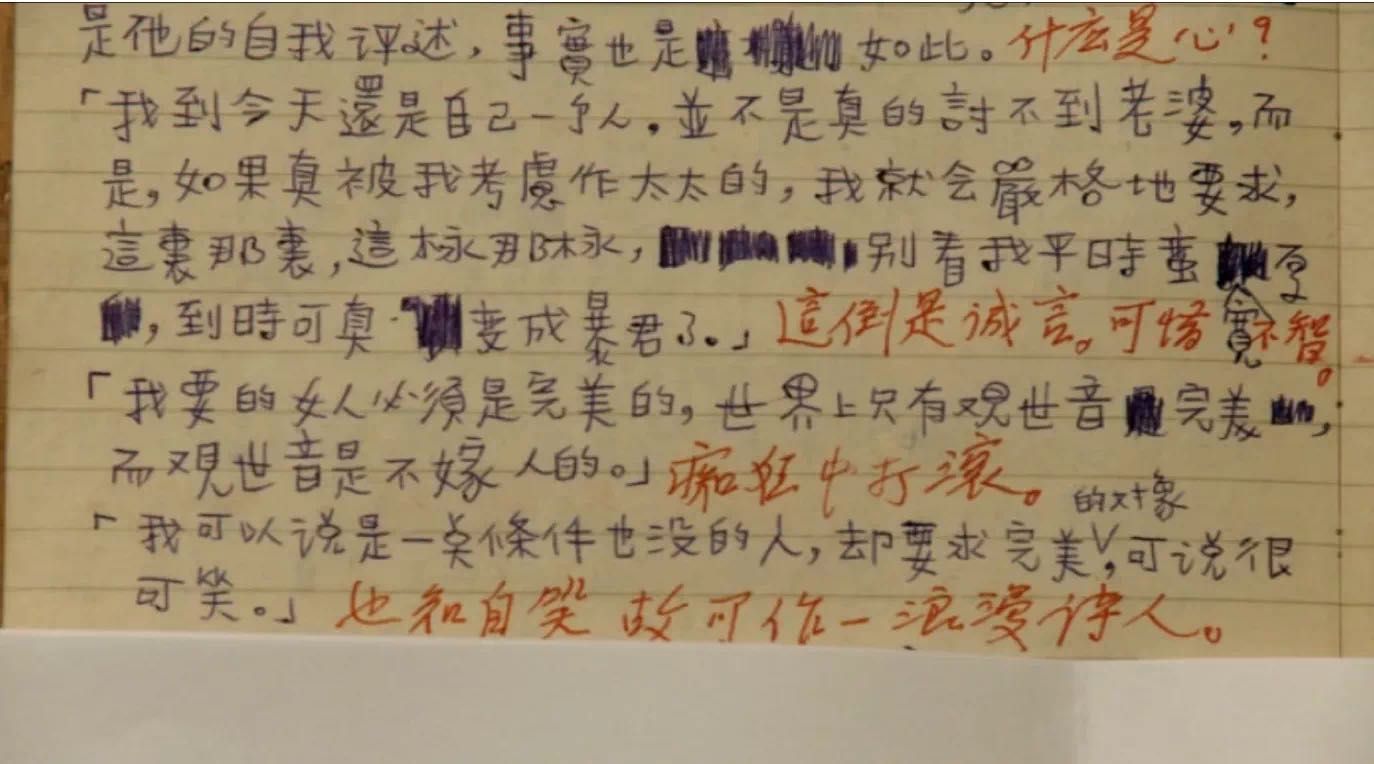 是他的自我评述，事實也是如此。什么是心？
「我到今天還是自己一个人，並不是真的討不到老婆，而
是，如果真被我考慮作太太的，我就会嚴格地要求，
這裏那裏，這樣那樣，别看我平時蛮寬厚
，到時可真变成暴君了。」這倒是诚言。可惜不智。
「我要的女人必須是完美的，世界上只有观世音完美，
而观世音是不嫁人的。」痴狂中打滚。
的对象
「我可以说是一点條件也没的人，却要求完美，可说很
可笑。」也知自笑 故可作一浪漫诗人。